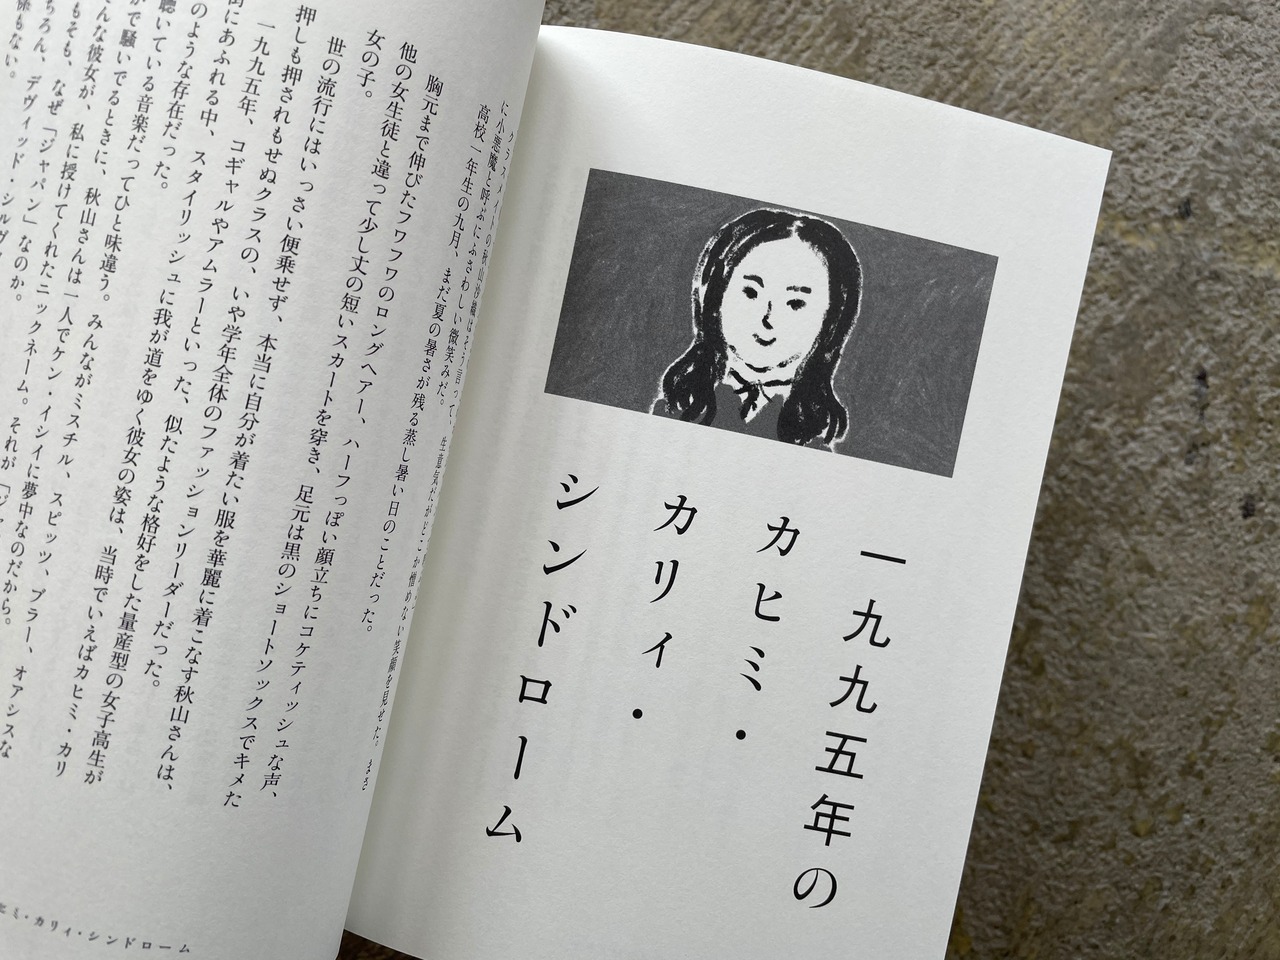 一九九五年の
カヒミ・
カリィ・
シンドローム
に小悪魔と呼ぶにふさわしい微笑みだ。
高校一年生の九月、まだ夏の暑さが残る蒸し暑い日のことだった。
胸元まで伸びたフワフワのロングヘアー、ハーフっぽい顔立ちにコケティッシュな声、
他の女生徒と違って少し丈の短いスカートを穿き、足元は黒のショートソックスでキメた
女の子。
世の流行にはいっさい便乗せず、本当に自分が着たい服を華麗に着こなす秋山さんは、
押しも押されもせぬクラスの、いや学年全体のファッションリーダーだった。
一九九五年、コギャルやアムラーといった、似たような格好をした量産型の女子高生が
街にあふれる中、スタイリッシュに我が道をゆく彼女の姿は、当時でいえばカヒミ・カリ
のような存在だった。
聴いている音楽だってひと味違う。みんながミスチル、スピッツ、ブラー、オアシスな
で騒いでるときに、秋山さんは一人でケン・イシイに夢中なのだから。
んな彼女が、私に授けてくれたニックネーム。それが「ジャ
もそも、なぜ「ジャパン」なのか。
ちろん、デヴィッド・シルヴ
係もない。
ヒミ・カリィ・シンドローム